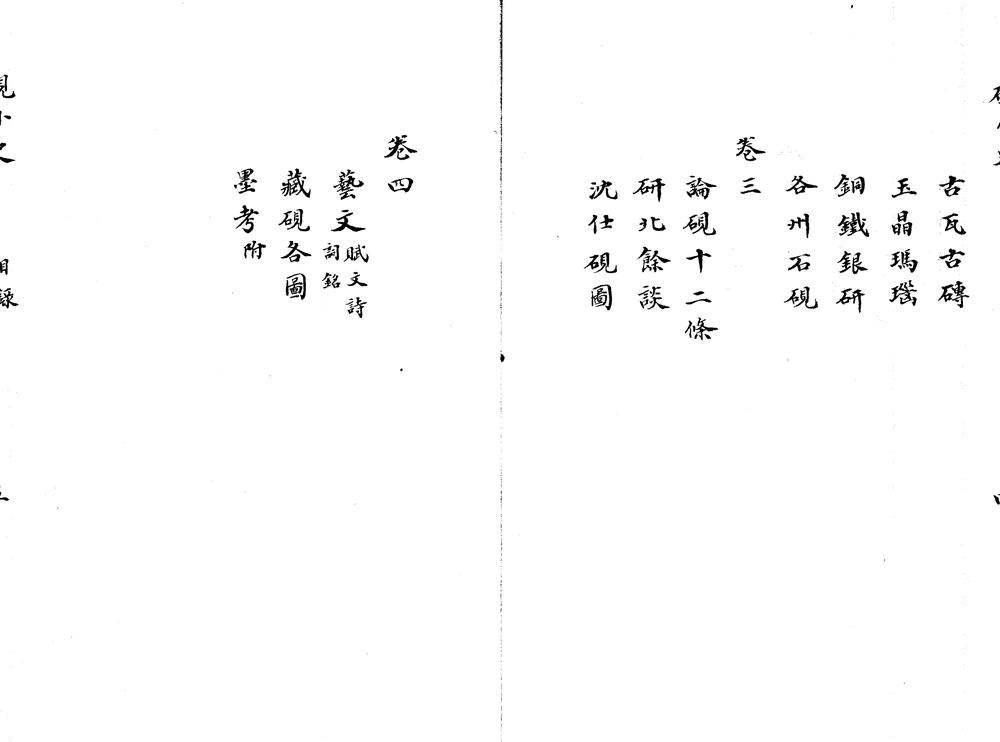 古瓦古磚
玉晶瑪瑙
銅鐵銀研
各州石硯
卷三
論硯十二條
研北餘談
沈仕硯圖
卷四
藝文賦文詩詞銘
藏硯各圖
墨考附